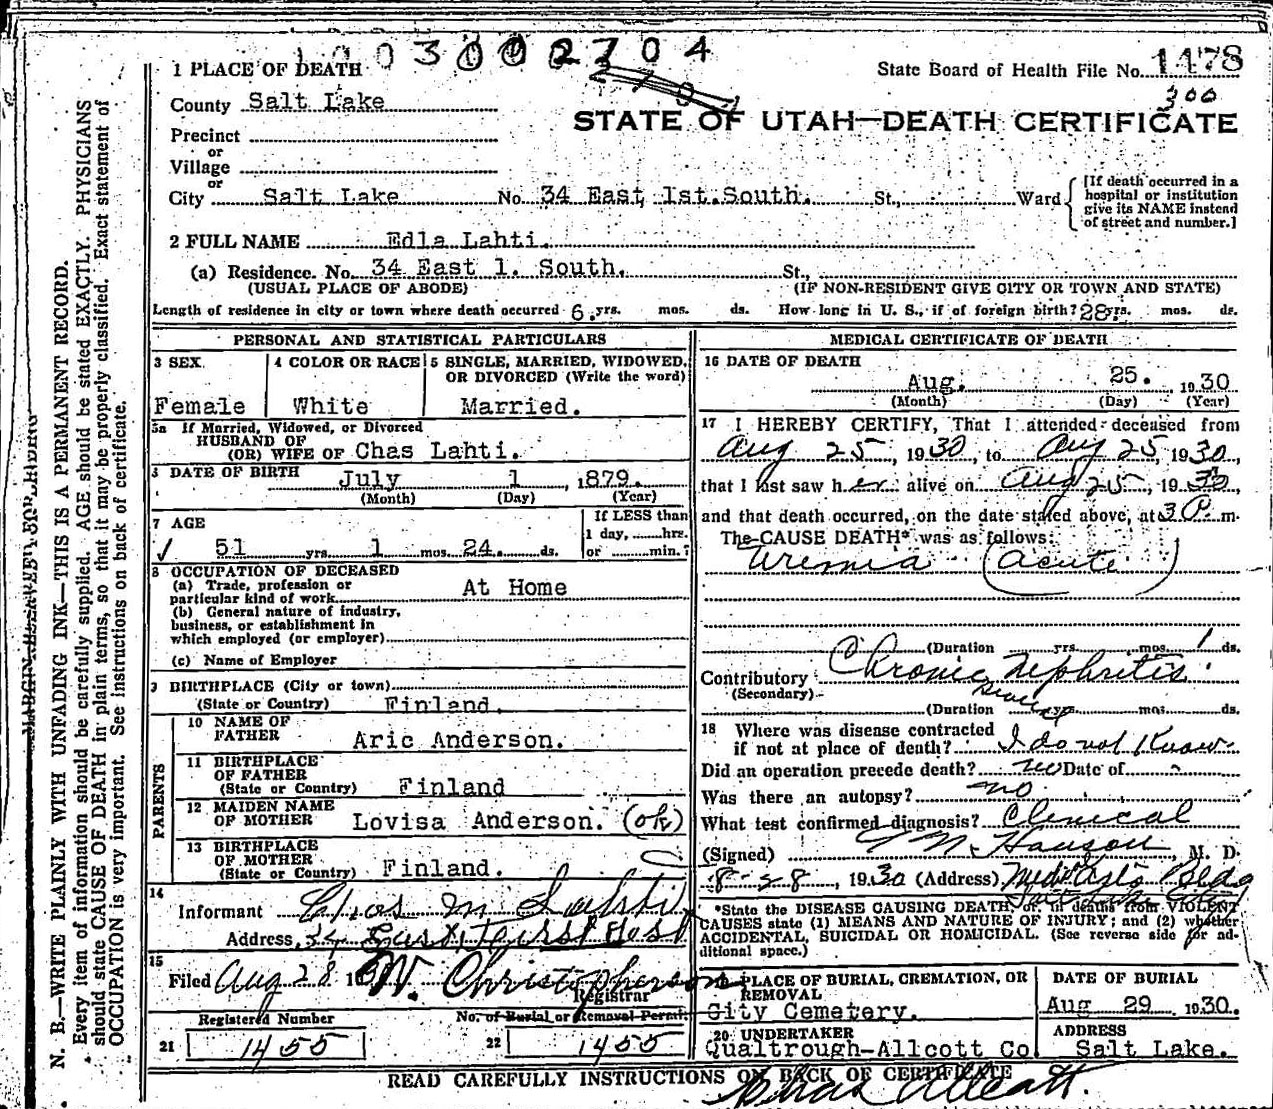 10030002704
1 PLACE OF DEATH
State Board of Health File No. 1478
300
County Salt Lake
STATE OF UTAH—DEATH CERTIFICATE
Precinct
or
Village
or
City Salt Lake No. 34 East 1st. South. St., Ward
[If death occurred in a
hospital or institution
give its NAME instead
of street and number.]
2 FULL NAME Edla Lahti.
(a) Residence. No. 34 East 1. South. St.,
(USUAL PLACE OF ABODE) (IF NON-RESIDENT GIVE CITY OR TOWN AND STATE)
Length of residence in city or town where death occurred 6. yrs. mos. ds. How long in U. S., if of foreign birth? 28 yrs. mos. ds.
PERSONAL AND STATISTICAL PARTICULARS
3 SEX
Female
4 COLOR OR RACE
White
5 SINGLE, MARRIED, WIDOWED,
OR DIVORCED (Write the word)
Married.
5a If Married, Widowed, or Divorced
HUSBAND OF
(OR) WIFE OF Chas Lahti.
6 DATE OF BIRTH July 1 , 1879.
(Month) (Day) (Year)
7 AGE
51 yrs. 1 mos. 24. ds.
If LESS than
1 day, hrs.
or min.?
8 OCCUPATION OF DECEASED
(a) Trade, profession or
particular kind of work At Home
(b) General nature of industry,
business, or establishment in
which employed (or employer)
(c) Name of Employer
9 BIRTHPLACE (City or town)
(State or Country) Finland.
PARENTS
10 NAME OF
FATHER Aric Anderson.
11 BIRTHPLACE
OF FATHER
(State or Country) Finland
12 MAIDEN NAME
OF MOTHER Lovisa Anderson. (ok)
13 BIRTHPLACE
OF MOTHER
(State or Country) Finland.
14
Informant Chas M Lahti
Address, 34 East First
15
Filed Aug 28 19 W. Christopherson
Registrar
Registered Number No. of Burial or Removal Permit
21 1455 22 1455
MEDICAL CERTIFICATE OF DEATH
16 DATE OF DEATH
Aug. 25. 1930
(Month) (Day) (Year)
17 I HEREBY CERTIFY, That I attended deceased from
Aug 25, 1930, to Aug 25, 1930,
that I last saw her alive on Aug 25, 1930
and that death occurred, on the date stated above, at 3 P m.
The CAUSE DEATH* was as follows:
Uremia (Acute)
(Duration yrs. mos. 1 ds.
Contributory Chronic Nephritis
(Secondary)
(Duration Several yrs. mos. ds.
18 Where was disease contracted
if not at place of death? I do not Know
Did an operation precede death? no Date of
Was there an autopsy? no.
What test confirmed diagnosis? Clinical
(Signed) Hanson, M. D.
8-28, 1930 (Address) Bldg
*State the DISEASE CAUSING DEATH, or in deaths from VIOLENT
CAUSES state (1) MEANS AND NATURE OF INJURY; and (2) whether
ACCIDENTAL, SUICIDAL OR HOMICIDAL. (See reverse side for ad-
ditional space.)
PLACE OF BURIAL, CREMATION, OR
REMOVAL
City Cemetery.
DATE OF BURIAL
Aug 29 1930.
20 UNDERTAKER
Qualtrough-Allcott Co.
ADDRESS
Salt Lake.
READ CAREFULLY INSTRUCTIONS ON BACK OF CERTIFICATE
Allcott.
MARGIN RESERVED FOR BINDING
N. B.—WRITE PLAINLY WITH UNFADING INK—THIS IS A PERMANENT RECORD.
Every item of information should be carefully supplied. AGE should be stated EXACTLY. PHYSICIANS
should state CAUSE OF DEATH in plain terms, so that it may be properly classified. Exact statement of
OCCUPATION is very important. See instructions on back of certificate.